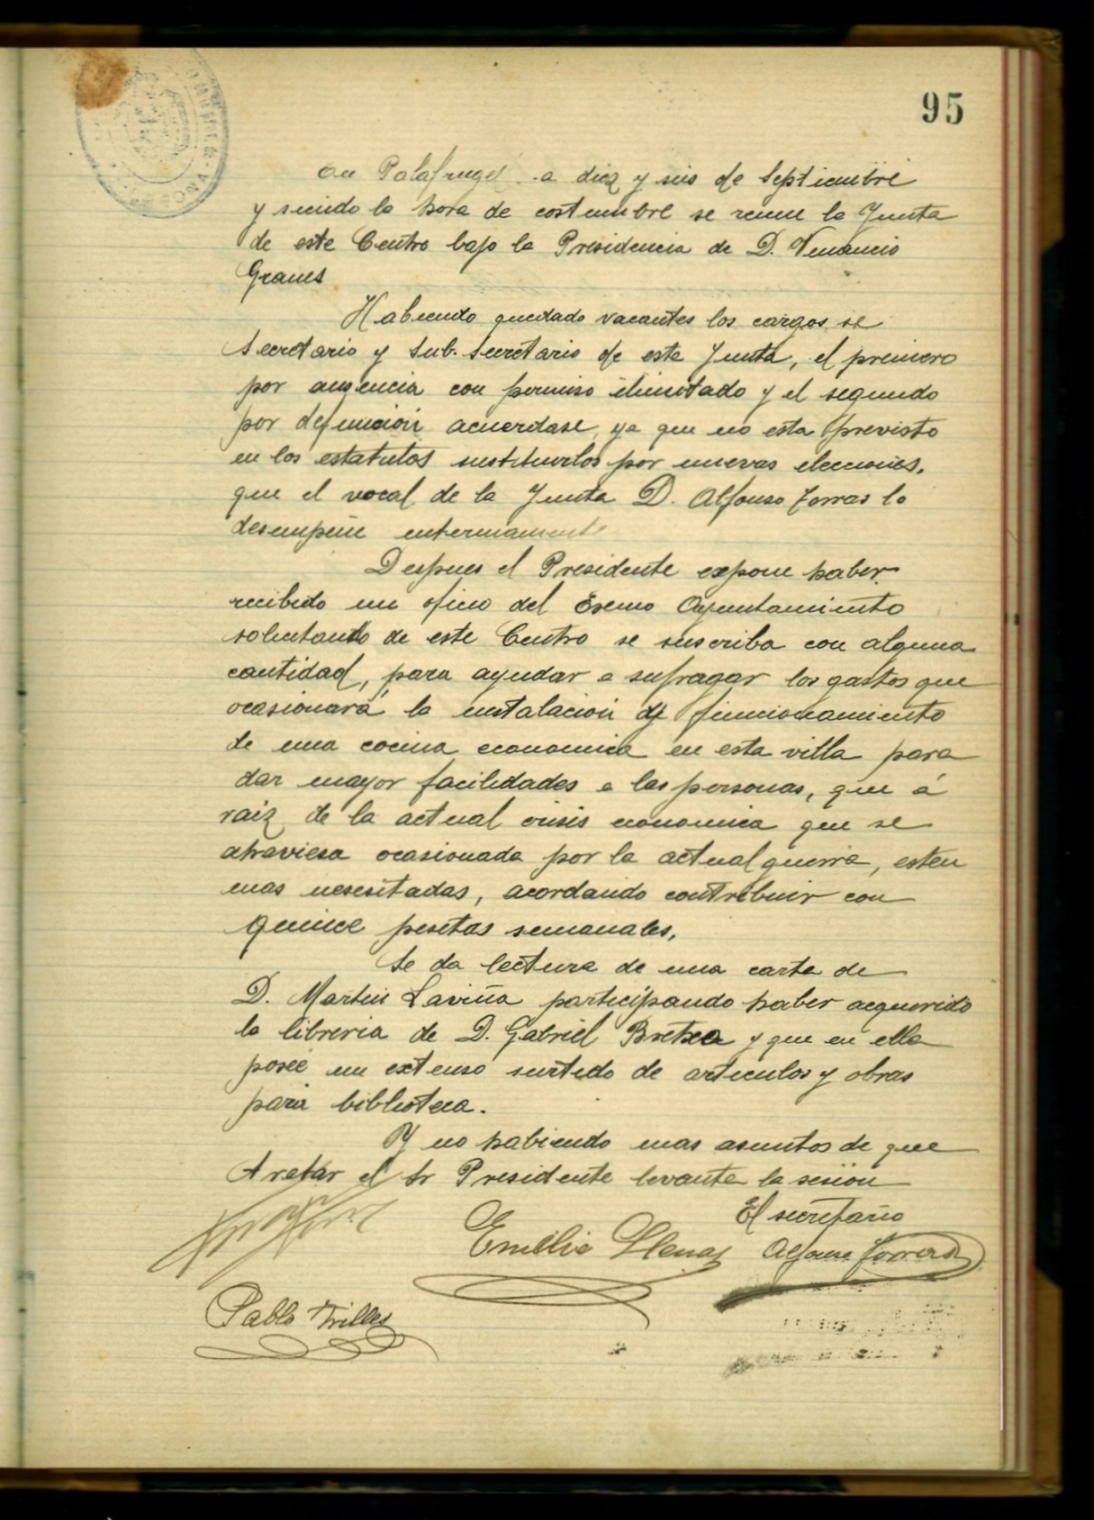 95
En Palafrugell a diez y seis de Septiembre
y siendo la hora de costumbre se reune la Junta
de este Centro bajo la Presidencia de D. Venancio
Granés
Habiendo quedado vacantes los cargos se
Secretario y Sub-Secretario de esta Junta, el primero
por ausencia con permiso ilimitado y el segundo
por defunción acuerdase, ya que no esta previsto
en los estatutos sustituirlos por nuevas elecciones,
que el vocal de la Junta D. Alfonso Torras lo
desempeñe interinamente
Despues el Presidente expone haber
recibido un oficio del Exemo Ayuntamiento
solicitando de este Centro se suscriba con alguna
cantidad, para ayudar a sufragar los gastos que
ocasionará la instalación y funcionamiento
de una cocina economica en esta villa para
dar mayor facilidades a las personas, que á
raiz de la actual crisis economica que se
atraviesa ocasionada por la actual guerra, esten
mas nesesitadas, acordando contribuir con
quince pesetas semanales.
Se da lectura de una carta de
D. Martin Laviña participando haber adquirido
la libreria de D. Gabriel Bretxa y que en ella
posee un extenso surtido de articulos y obras
para biblioteca.
Y no habiendo mas asuntos de que
tratar el Sr Presidente levanta la sesión
El secretario
Emilio Llenas Alfonso Torras
Pablo Trilles